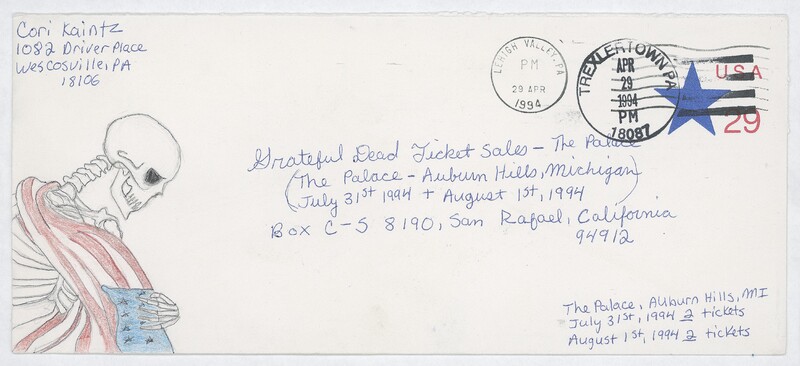 Cori Kaintz
1082 Driver Place
Wescosville, PA
18106
LEHIGH VALLEY, PA
PM
29 APR
1994
TREXLERTOWN PA
APR
29
1994
PM
18087
USA
29
Grateful Dead Ticket Sales - The Palace
(The Palace - Auburn Hills, Michigan)
July 31st 1994 + August 1st, 1994
Box C-S 8190, San Rafael, California
94912
The Palace, Auburn Hills, MI
July 31st, 1994 2 tickets
August 1st, 1994 2 tickets